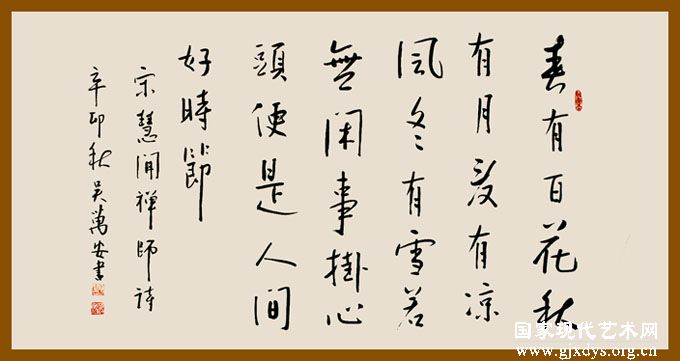 春有百花秋
有月夏有凉
風冬有雪若
無閑事掛心
頭便是人間
好時節
宋慧開禪師詩
辛卯秋吳萬安書
国家现代艺术网
www.gjxdys.org.cn